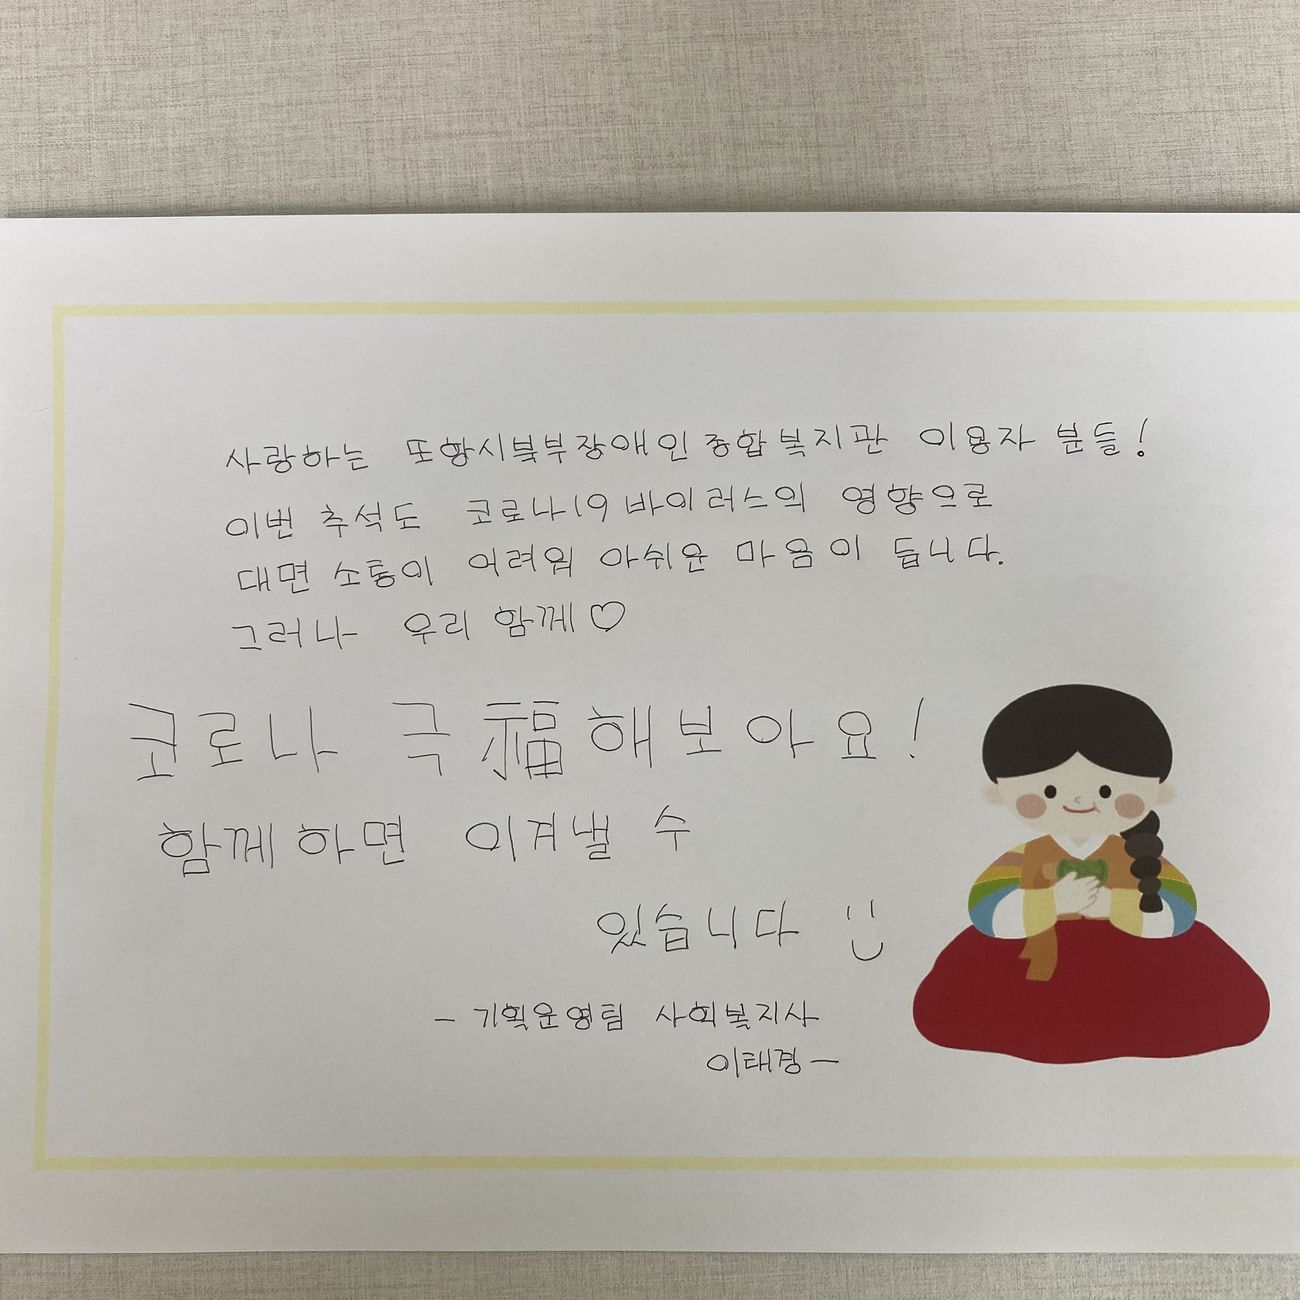 사랑하는 포항시북부장애인종합복지관 이용자 분들!
이번 추석도 코로나19 바이러스의 영향으로
대면 소통이 어려워 아쉬운 마음이 듭니다.
그러나 우리 함께♡
코로나 극福해보아요!
함께하면 이겨낼 수
있습니다 :)
- 기획운영팀 사회복지사
이태경 -